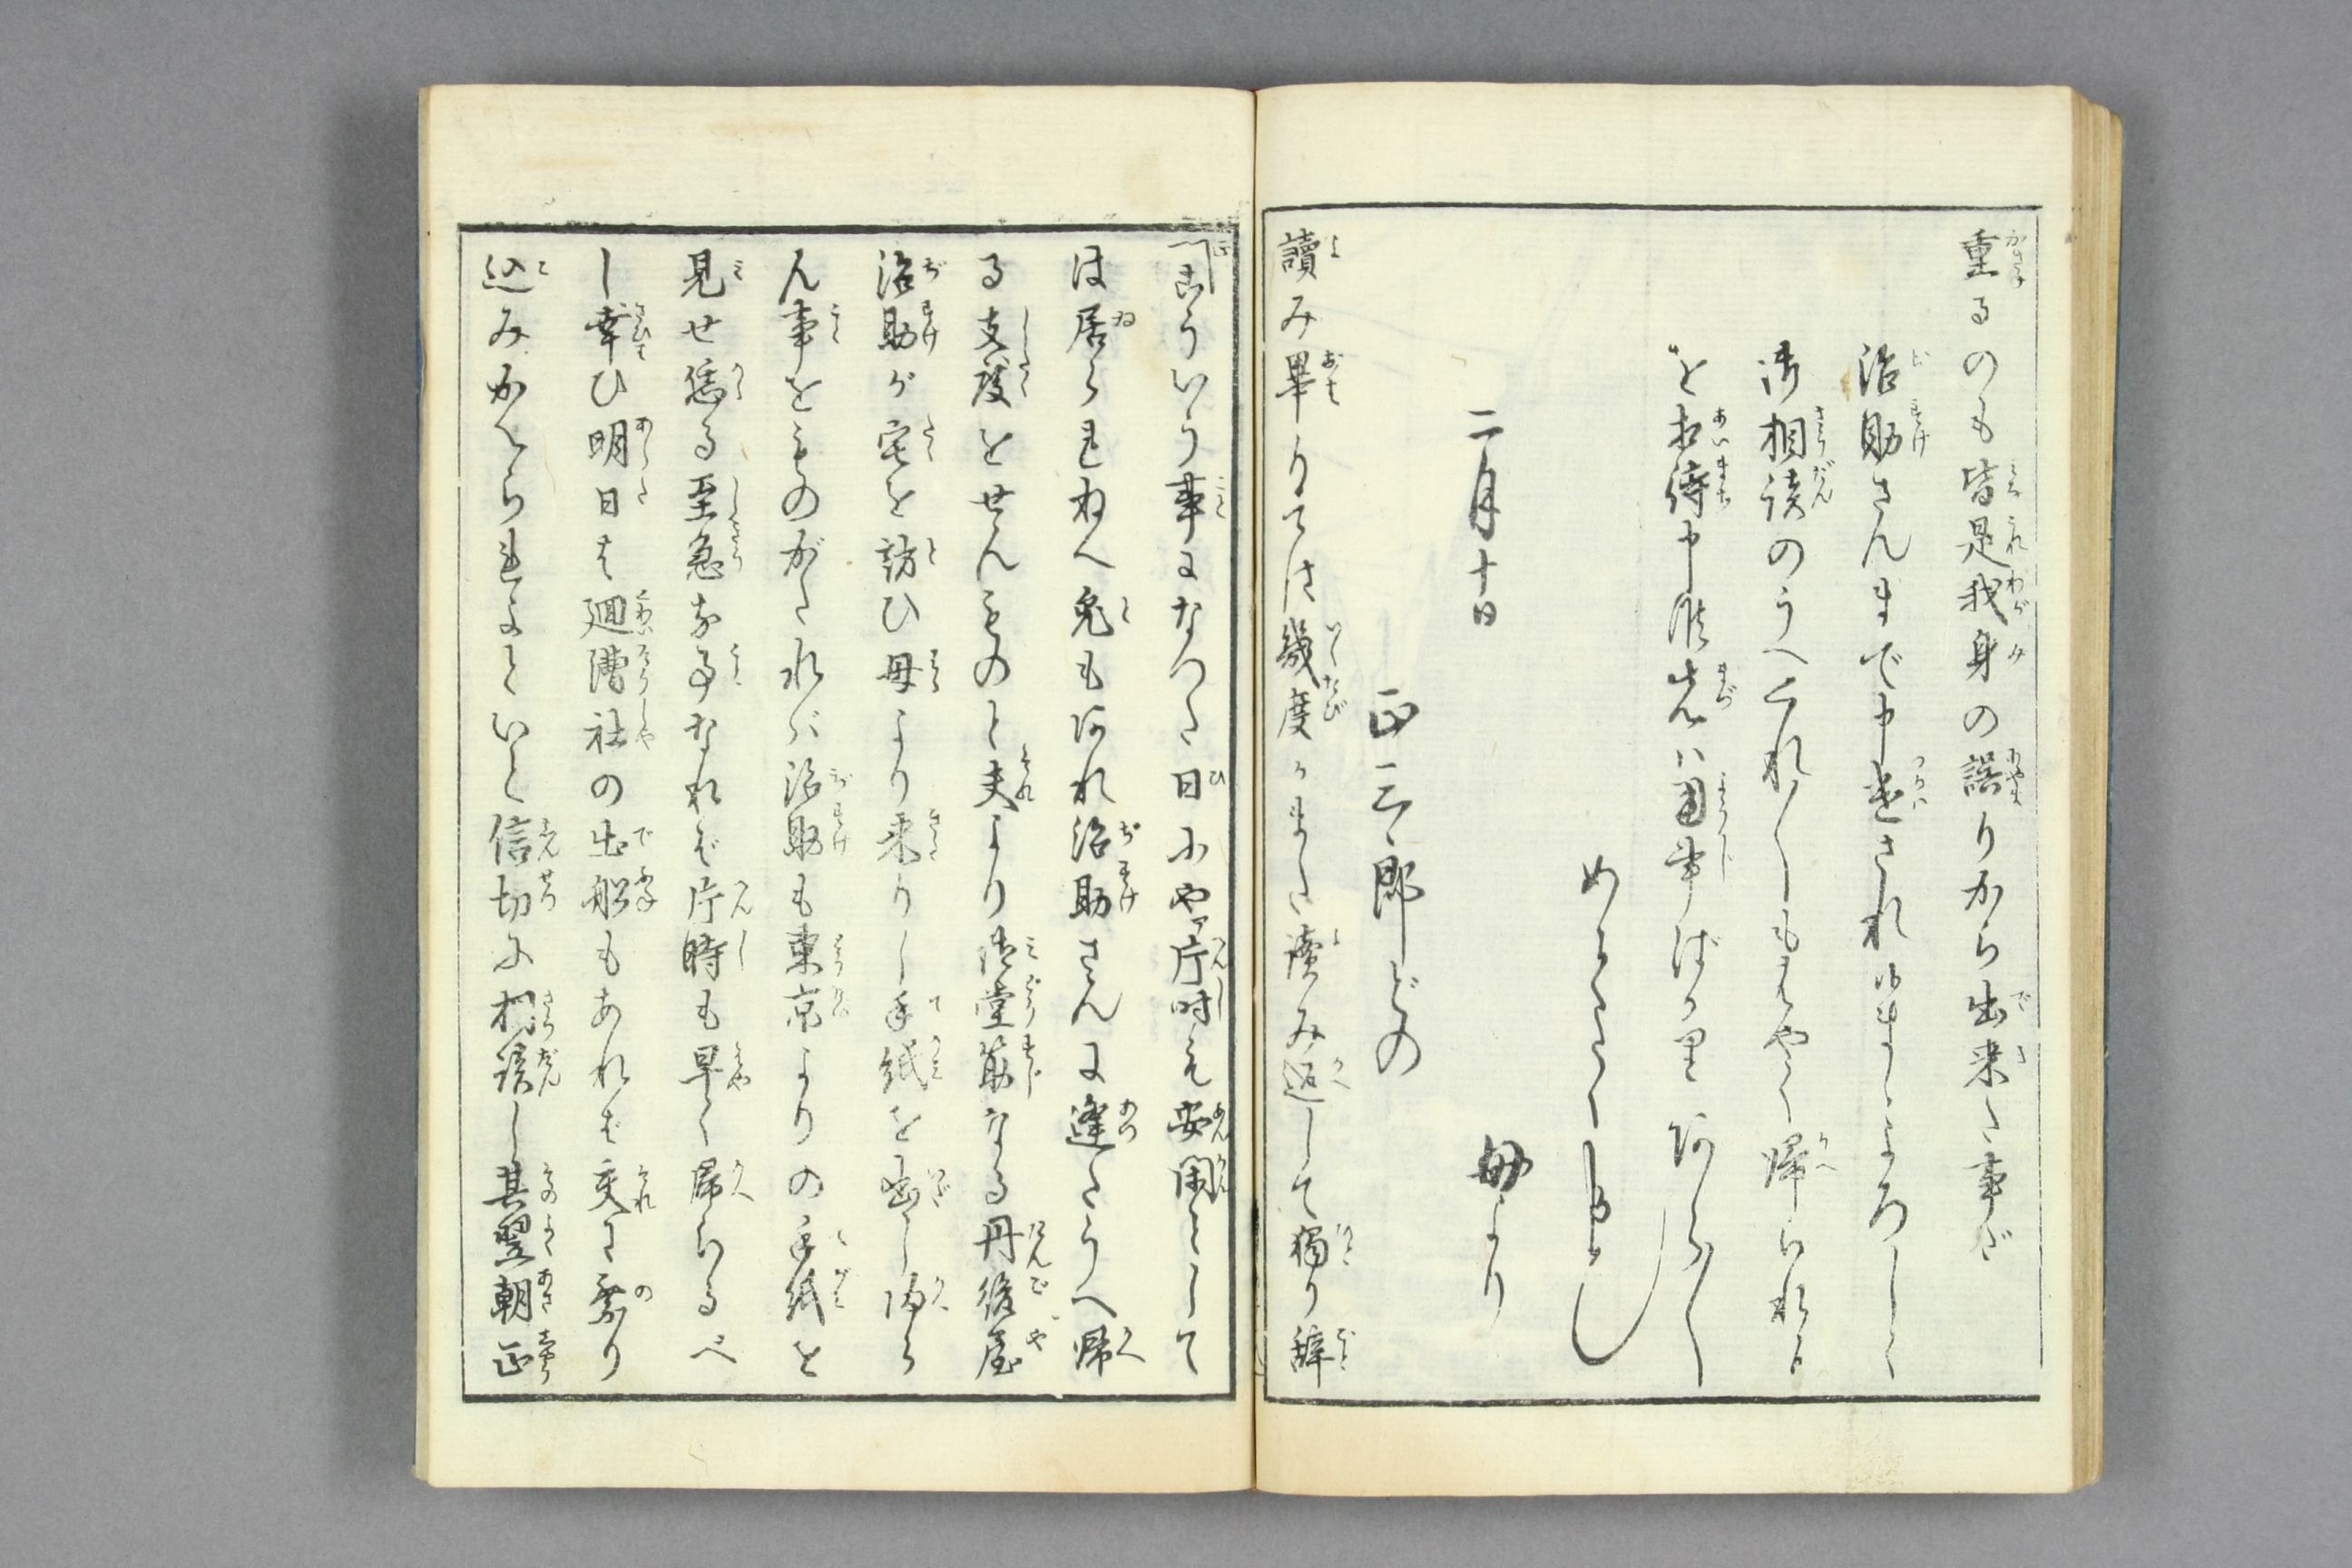 重るのも皆是我身の誤りから出来た事ゞ
治助さんまで申遣され候まゝよろしく
御相談のうへくれ〴〵もはやく帰られ候
を相待申候先は用事ばかり あら〳〵
めでたくかしく
二月十日
母より
正三郎どの
讀み畢りては幾度かまた讀み返して獨り辞
こういう事になつた日にやア片時も安閑として
は居られねへ兎もあれ治助さんに逢たうへ帰
る支度をせんものと夫より御堂筋なる丹後屋
治助が宅を訪ひ母より来りし手紙を出し帰ら
ん事をものがたれバ治助も東京よりの手紙を
見せ恁る至急な事なれば片時も早く帰らるべ
し幸ひ明日は廻漕社の出船もあれば夫に乗り
込みかへられよといと信切に相談し其翌朝正